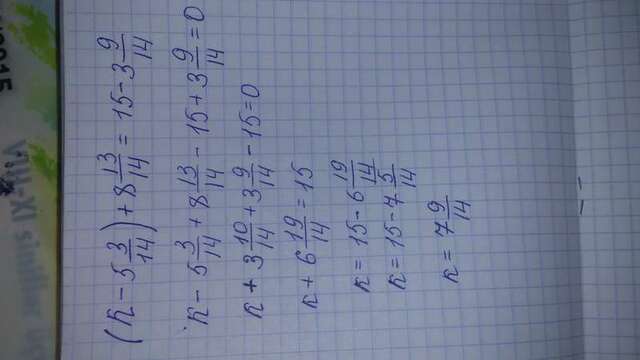 (K - 5 3/14) + 8 13/14 = 15 - 3 9/14
K - 5 3/14 + 8 13/14 - 15 + 3 9/14 = 0
K + 3 10/14 + 3 9/14 - 15 = 0
K + 6 19/14 = 15
K = 15 - 6 19/14
K = 15 - 7 5/14
K = 7 9/14
2015
VIII-XI siniflər